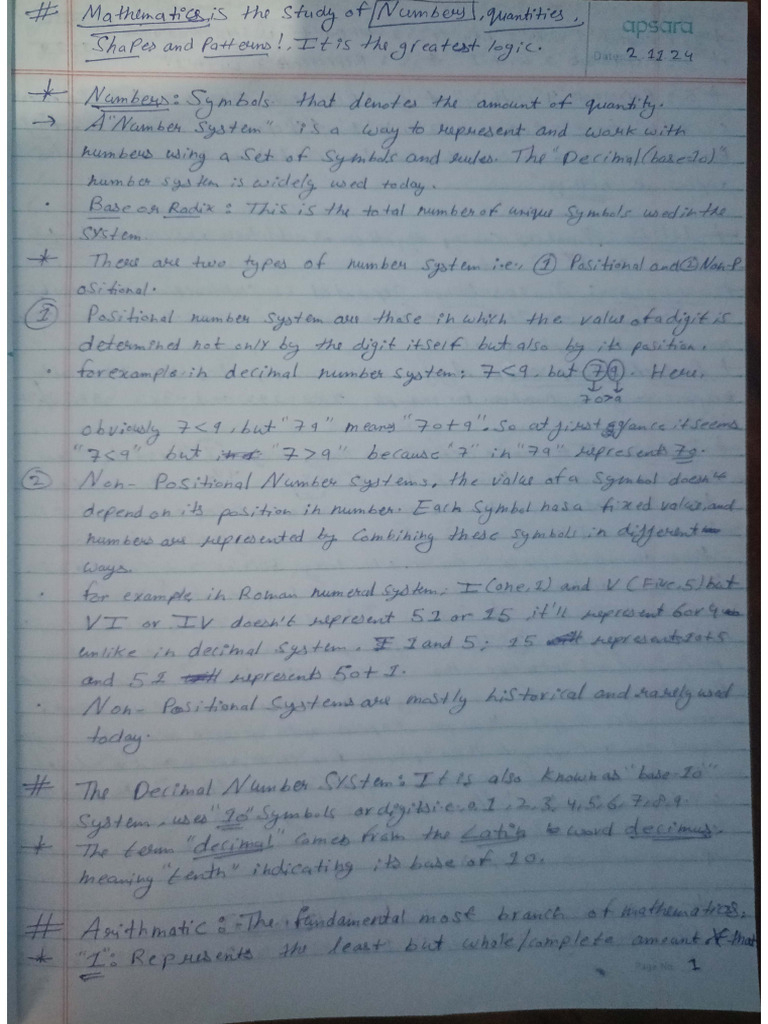 # Mathematics, is the study of Numbers, quantities,
Shapes and Patterns!. It is the greatest logic.
apsara
Date: 2 11 24
* Numbers: Symbols that denotes the amount of quantity.
→ A "Number System" is a way to represent and work with
numbers using a set of symbols and rules. The "Decimal (base 10)"
number system is widely used today.
· Base or Radix: This is the total number of unique symbols used in the
system.
* There are two types of number system i.e., ① Positional and ② Non-P
ositional.
① Positional number system are those in which the value of a digit is
determined not only by the digit itself but also by its position.
· for example in decimal number system: 7<9, but 79. Here,
70>9
obviously 7<9, but "79" means "70+9". So at first glance it seems
"7<9" but "7>9" because "7" in "79" represents 70.
② Non-Positional Number Systems, the value of a symbol doesn't
depend on its position in number. Each symbol has a fixed value, and
numbers are represented by combining these symbols in different
ways.
· for example, in Roman numeral system: I (one, 1) and V (Five, 5) but
VI or IV doesn't represent 51 or 15 it'll represent 6 or 4
unlike in decimal system. 1 and 5; 15 represents 10+5
and 51 represents 50+1.
· Non-Positional Systems are mostly historical and rarely used
today.
# The Decimal Number System: It is also known as "base 10"
system, uses "10" symbols or digits i.e. 0 1, 2, 3, 4, 5, 6, 7, 8, 9.
* The term "decimal" comes from the Latin word decimus,
meaning "tenth" indicating its base of 10.
# Arithmatic: The fundamental most branch of mathematics.
* "1": Represents the least but whole/complete amount that
Page No. 1